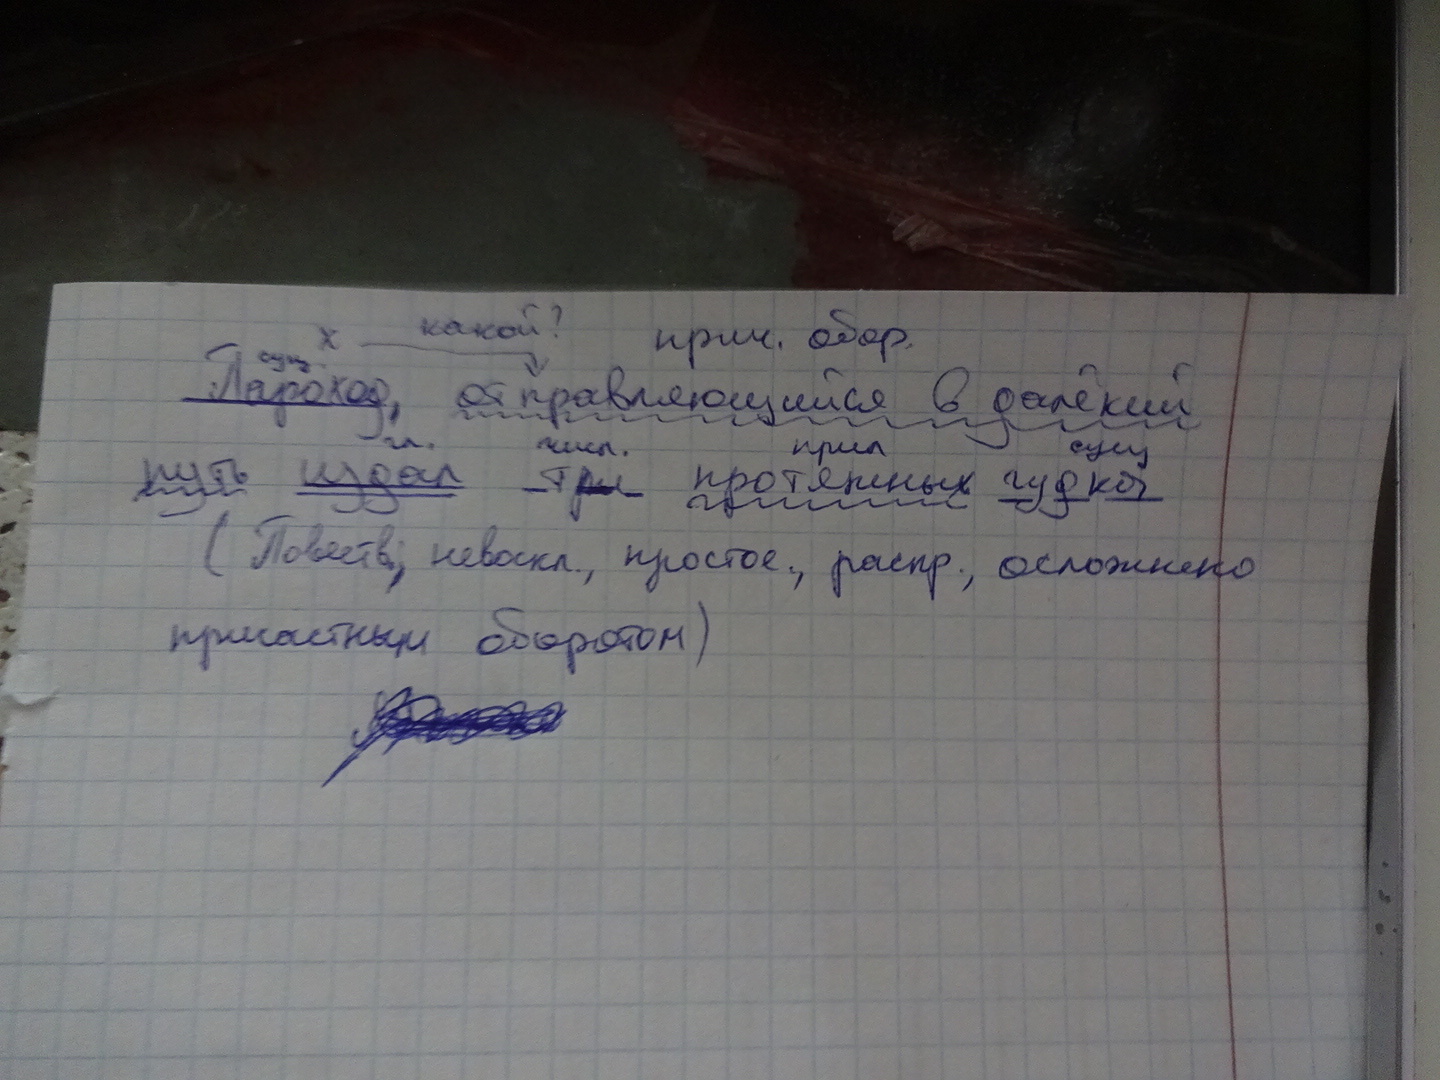 х какой? прич. обор.
сущ.
Пароход, отправляющийся в далёкий
гл. числ. прил сущ
путь издал три протяжных гудка
(Повеств., невоскл., простое., распр., осложнено
причастным оборотом)